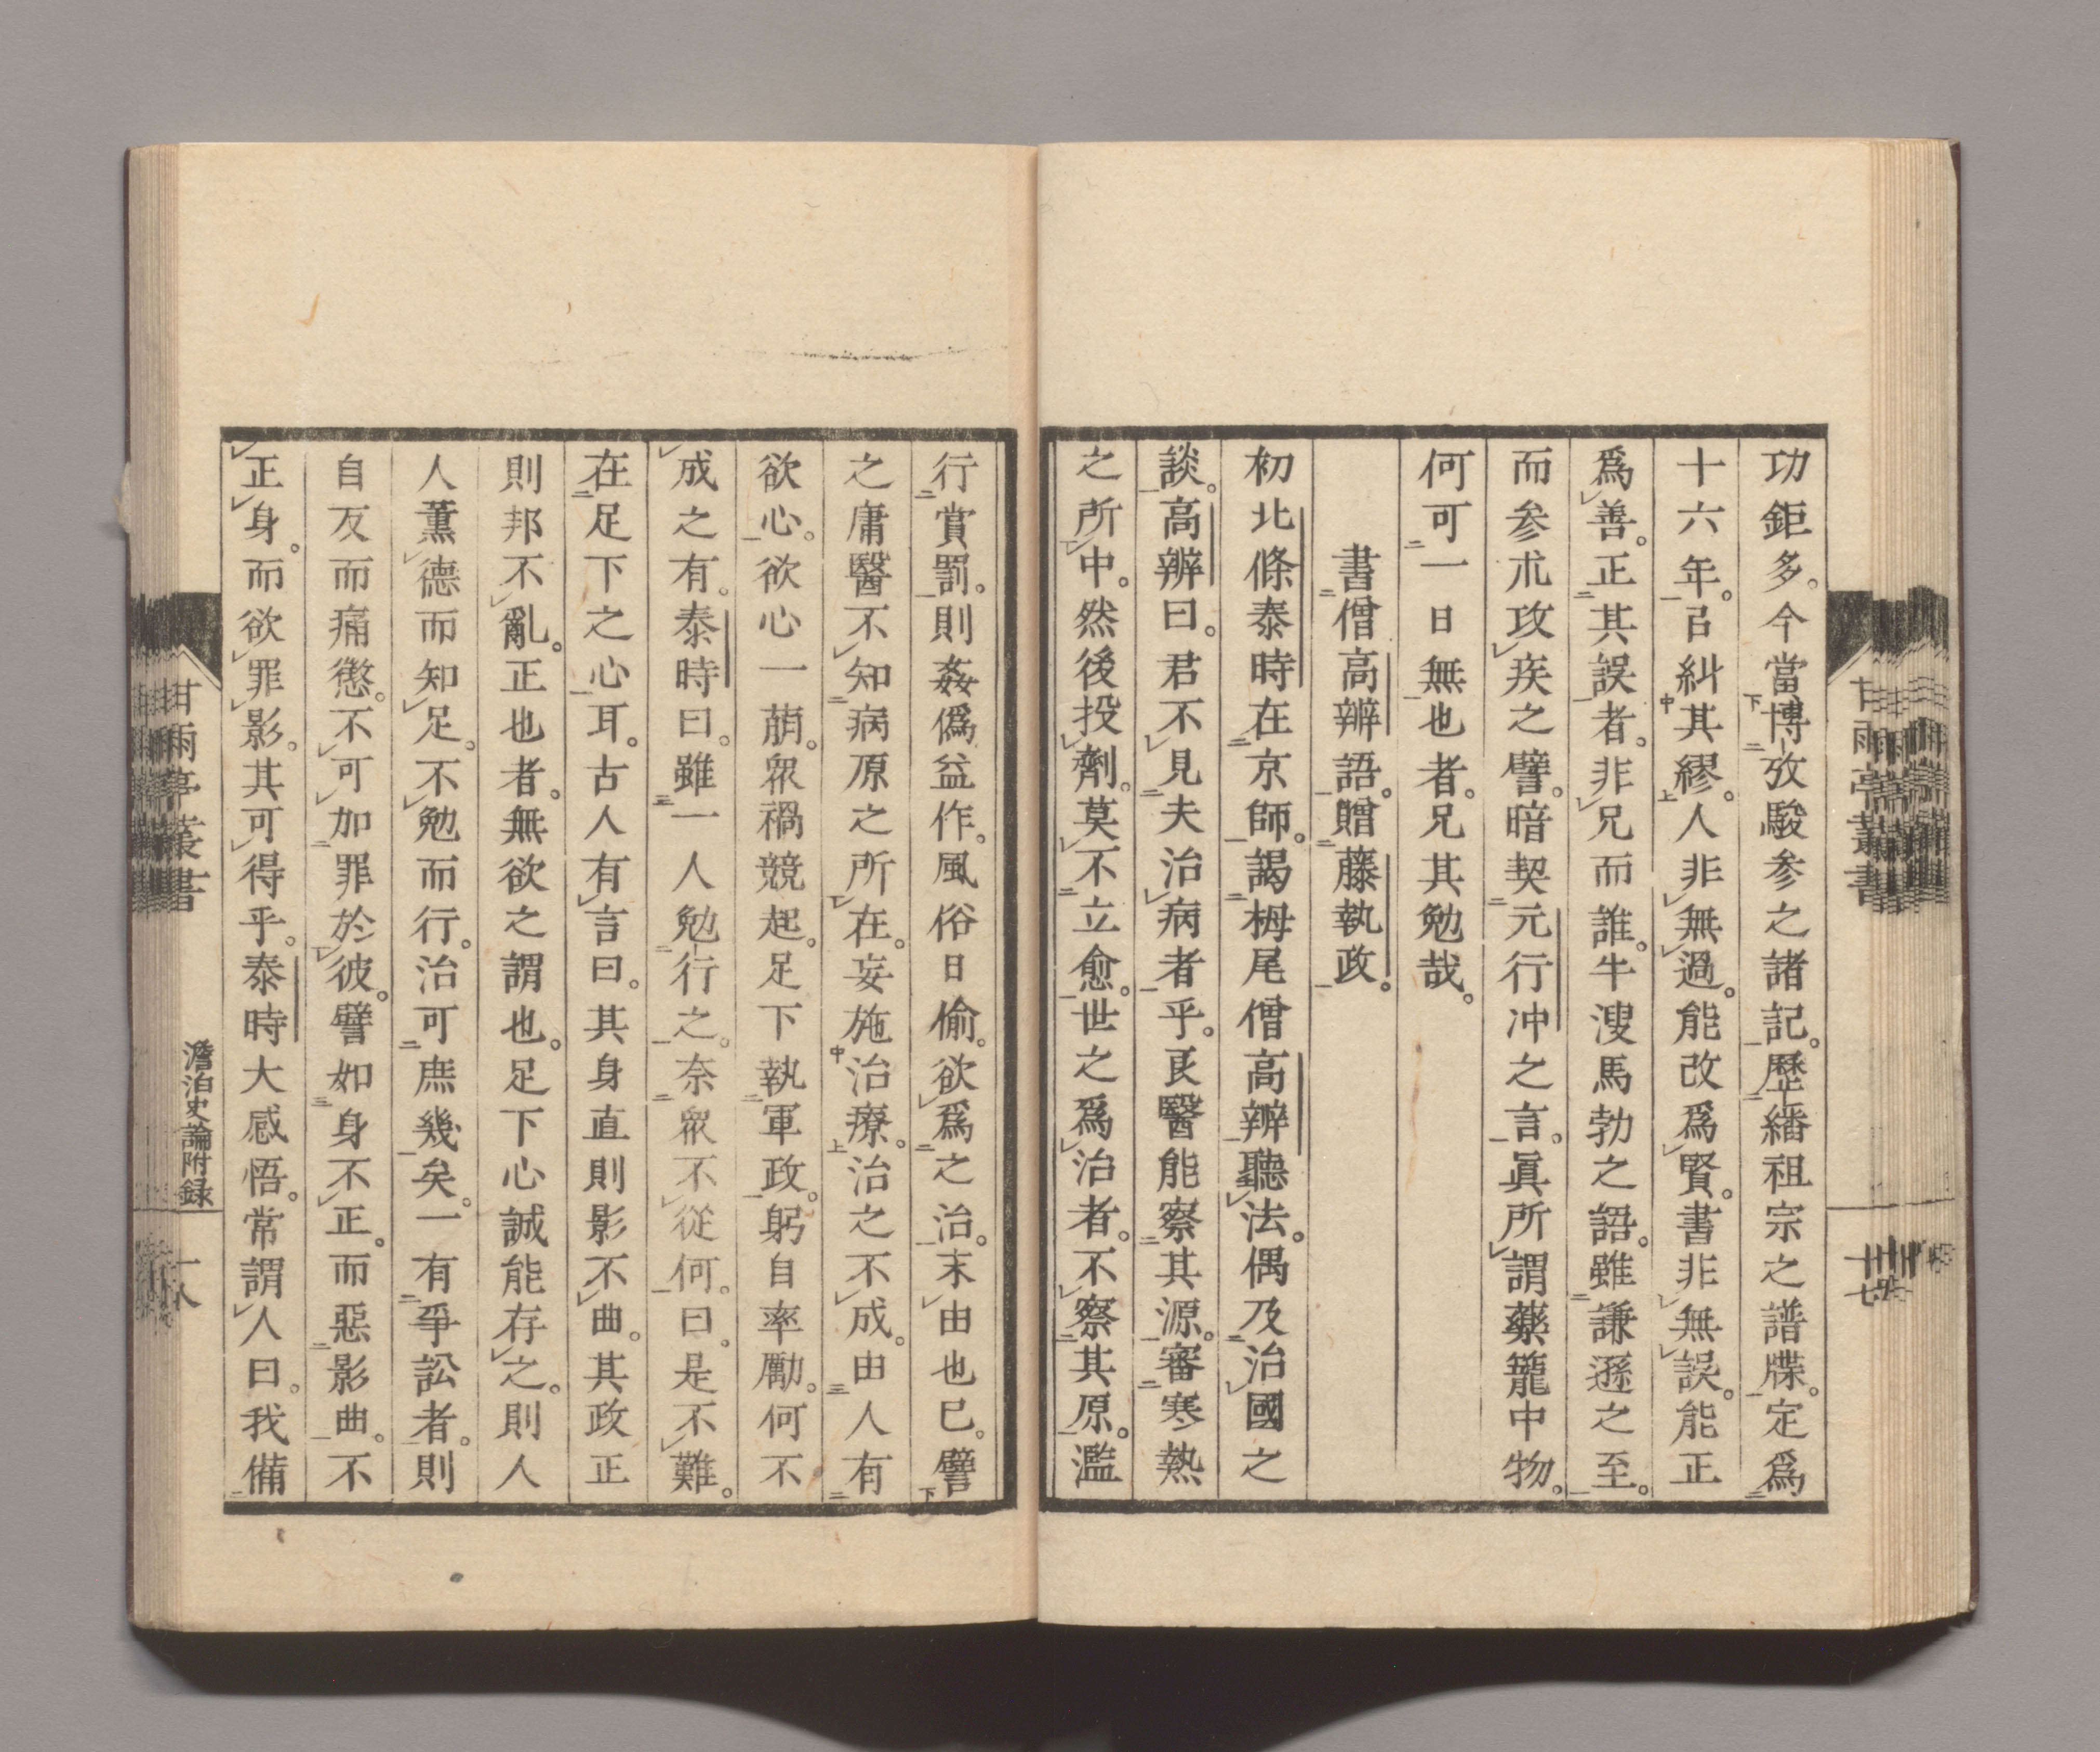 功鉅多。今當博攷駿参之諸記。歷繙祖宗之譜牒。定爲
十六年。㠯糾其繆。人非無過。能改爲賢。書非無誤。能正
爲善。正其誤者。非兄而誰。牛溲馬勃之語。雖謙遜之至。
而参朮攻疾之譬。暗契元行冲之言。眞所謂藥籠中物。
何可一日無也者。兄其勉哉。
書僧高辨語。贈藤執政。
初北條泰時在京師。謁栂尾僧高辨聽法。偶及治國之
談。高辨曰。君不見夫治病者乎。良醫能察其源。審寒熱
之所中。然後投劑。莫不立愈。世之爲治者。不察其原。濫
甘雨亭叢書
十七
行賞罰。則姦僞益作。風俗日偷。欲爲之治。末由也已。譬
之庸醫不知病原之所在。妄施治療。治之不成。由人有
欲心。欲心一萠。衆禍競起。足下執軍政。躬自率勵。何不
成之有。泰時曰。雖一人勉行之。奈衆不從何。曰。是不難。
在足下之心耳。古人有言曰。其身直則影不曲。其政正
則邦不亂。正也者。無欲之謂也。足下心誠能存之。則人
人薰德而知足。不勉而行。治可庶幾矣。一有爭訟者。則
自反而痛懲。不可加罪於彼。譬如身不正。而惡影曲。不
正身。而欲罪影。其可得乎。泰時大感悟。常謂人曰。我備
甘雨亭叢書
澹泊史論附録
十八